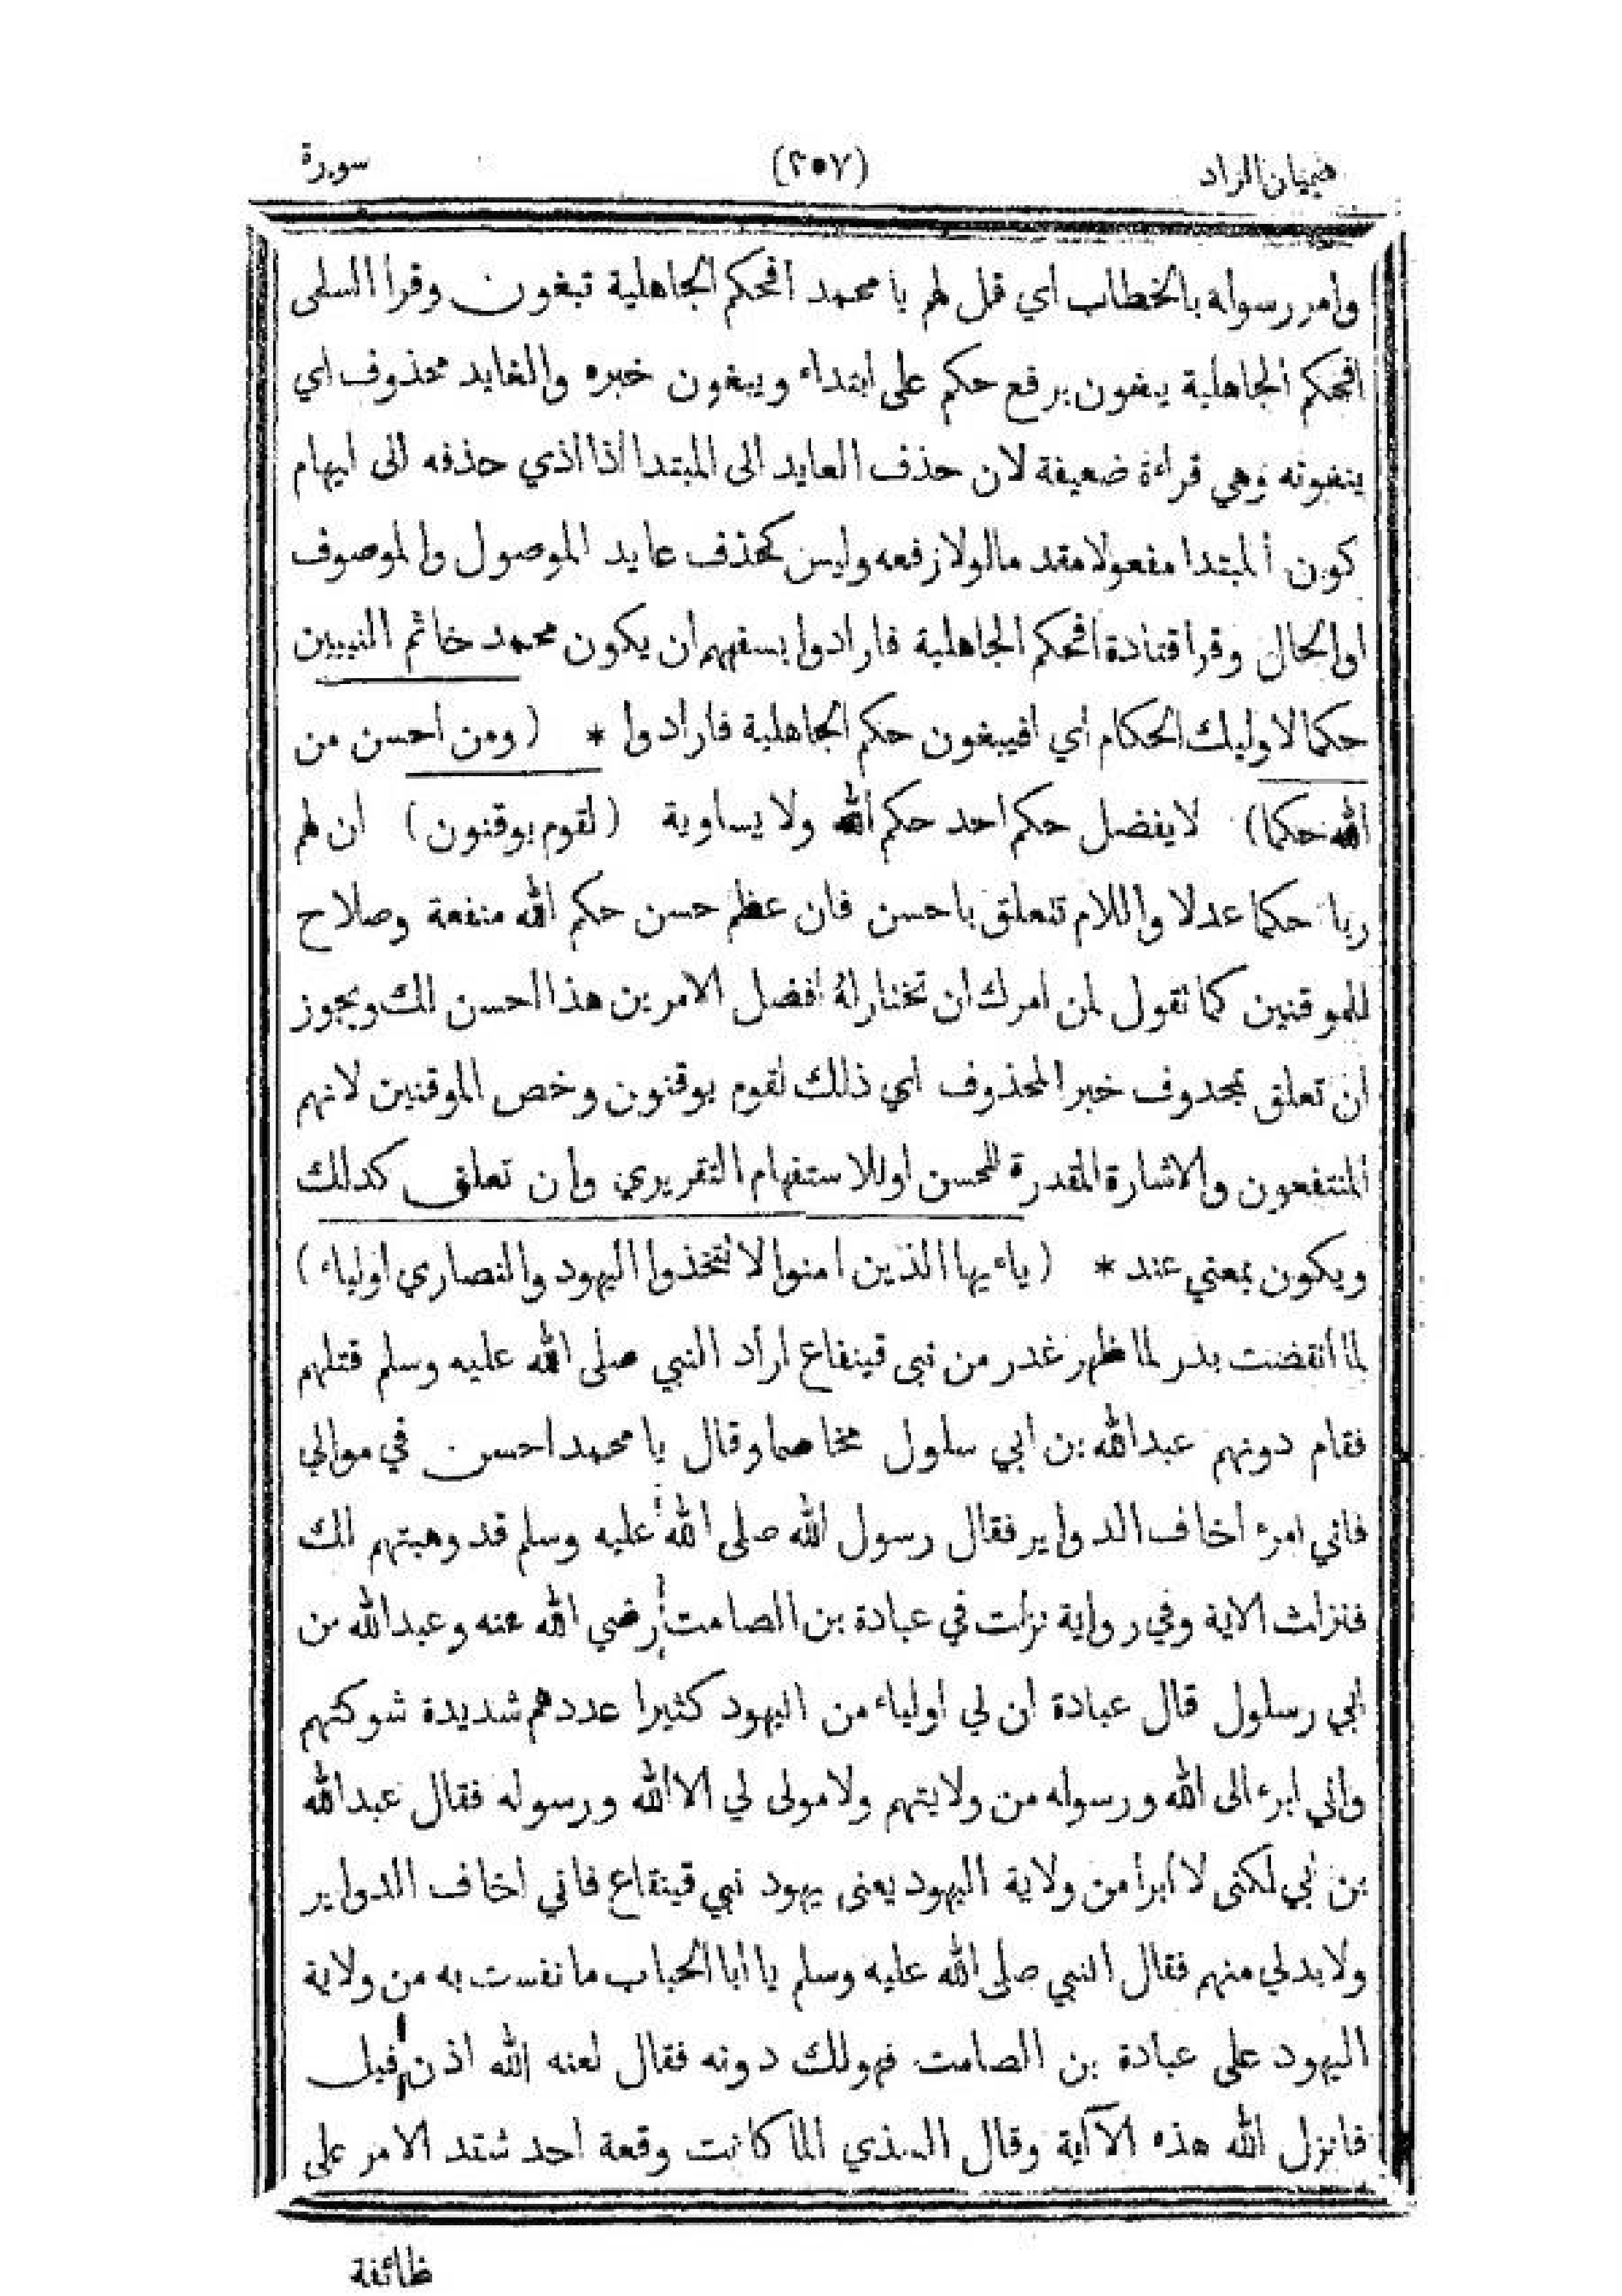 هيميان الزاد (٢٥٧) سورة
وامر رسوله بالخطاب اي قل لهم يا محمد افحكم الجاهلية تبغون وقرا السلمى
افحكم الجاهلية يبغون برفع حكم على ابتداء ويبغون خبره والعايد محذوف اي
يبغونه وهي قراءة ضعيفة لان حذف العايد الى المبتدا اذا اذي حذفه الى ايهام
كون المبتدا مفعولا مقد مالولا رفعه وليس كحذف عايد الموصول والموصوف
اوالحال وقرا قتادة افحكم الجاهلية فارادوا بسفههم ان يكون محمد خاتم النبيين
حكما لاوليك الحكام أي افيبغون حكم الجاهلية فارادوا * (ومن احسن من
الله حكما) لا يفضل حكم احد حكم الله ولا يساوية (لقوم يوقنون) ان لهم
ربا حكما عدلا واللام تتعلق باحسن فان عظم حسن حكم الله منفعة وصلاح
للموقنين كما تقول لمن امرك ان تختار له افضل الامرين هذا احسن لك ويجوز
ان تعلق بمحدوف خبر المحذوف اي ذلك لقوم يوقنون وخص الموقنين لانهم
المنتفعون والاشارة المقدرة للحسن اوللاستفهام التقريري وان تعلق كدلك
ويكون بمعني عند * (ياءيها الذين امنوا لا تتخذوا اليهود والنصاري اولياء)
لما انقضت بدر لما ظهر غدر من نبى قينقاع اراد النبي صلى الله عليه وسلم قتلهم
فقام دونهم عبدالله بن ابي سلول مخاصما وقال يا محمد احسن في موالي
فاني امرء اخاف الدواير فقال رسول الله صلى الله عليه وسلم قد وهبتهم لك
فنزلت الاية وفي رواية نزلت في عبادة بن الصامت رضي الله عنه وعبدالله من
ابي رسلول قال عبادة ان لي اولياء من اليهود كثيرا عددهم شديدة شوكتهم
واني ابرء الى الله ورسوله من ولايتهم ولا مولى لي الا الله ورسوله فقال عبدالله
بن ابي لكنى لا أبرأ من ولاية اليهود يعنى يهود نبي قينقاع فاني اخاف الدواير
ولا بدلي منهم فقال النبي صلى الله عليه وسلم يا أبا الحباب ما نفست به من ولاية
اليهود على عبادة بن الصامت فهولك دونه فقال لعنه الله اذن
فانزل الله هذه الآية وقال السذي الما كانت وقعة احد شتد الامر على
طائفة